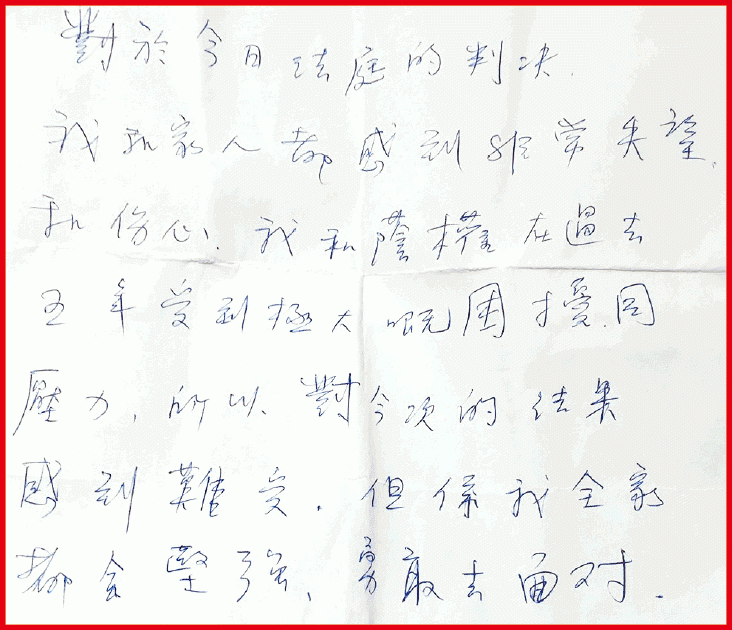 對於今日法庭的判决.
我和家人都感到非常失望,
和伤心. 我和蔭權在過去
五年受到極大嘅困擾.同
壓力, 所以對今次的结果
感到難受. 但係我全家
都会堅强、勇敢去面对.